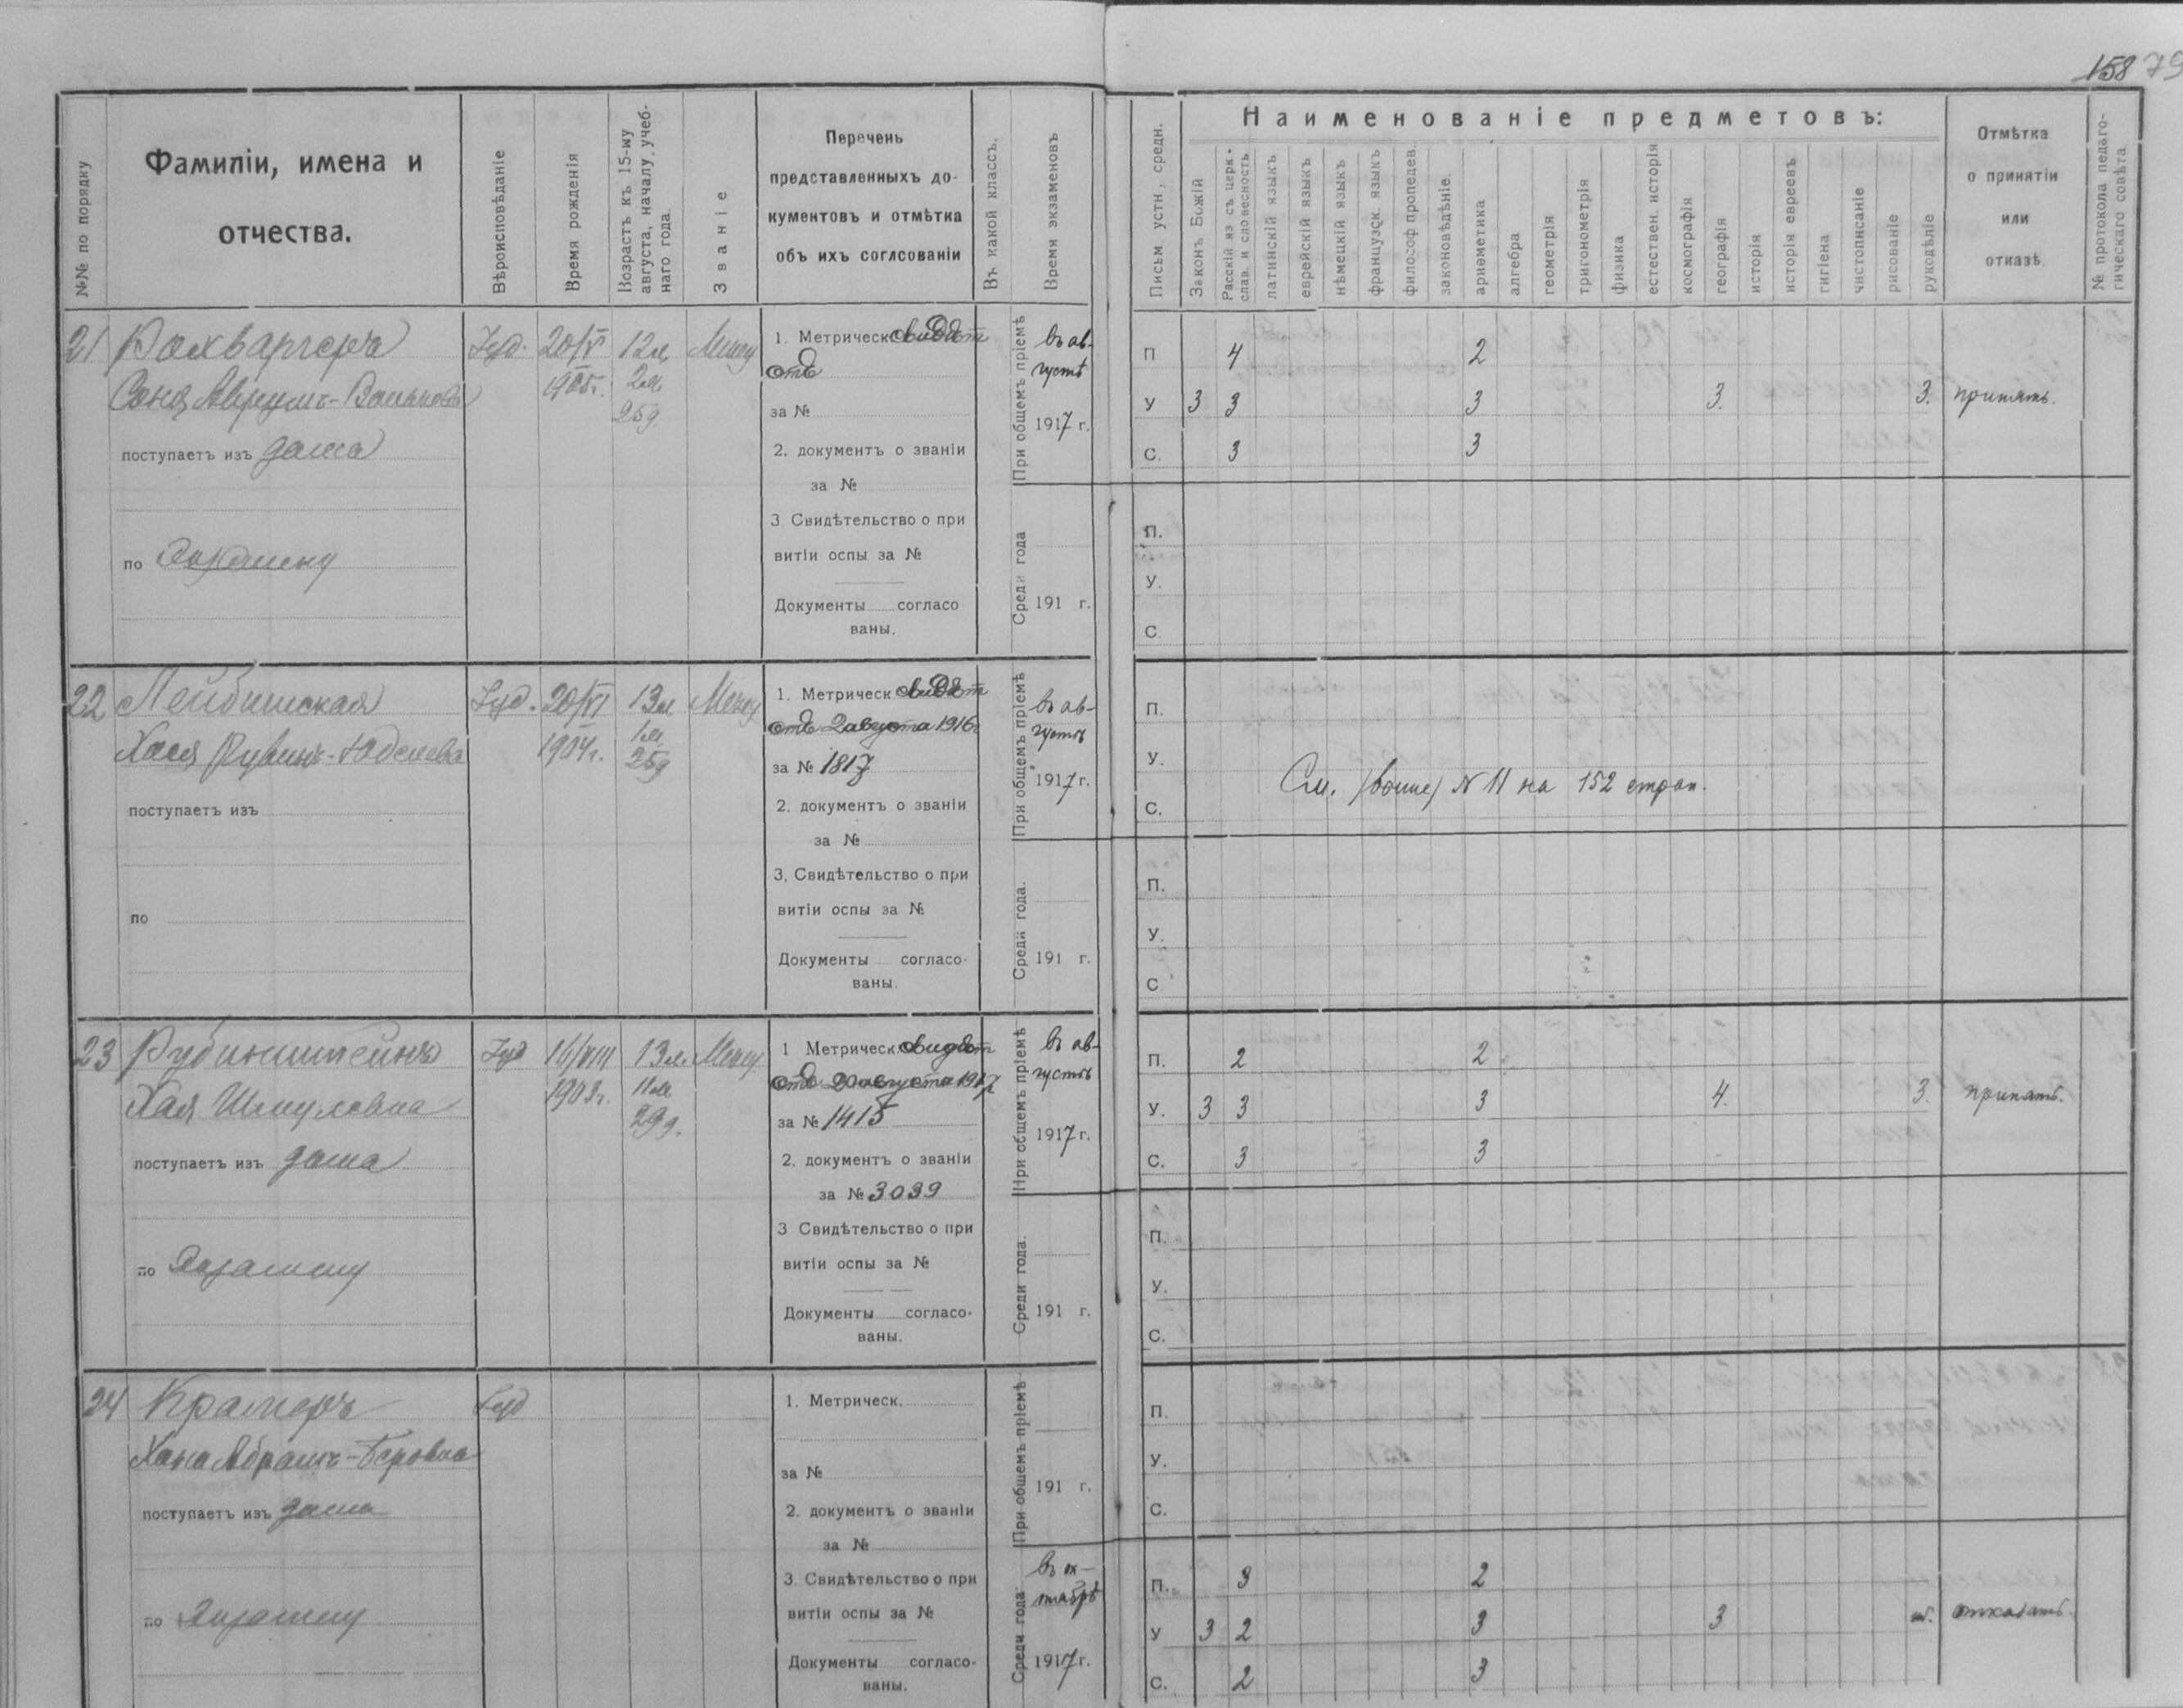 158 79
№№ по порядку
Фамиліи, имена и
отчества.
Вѣроисповѣданіе
Время рожденія
Возрастъ къ 15-му
августа, началу учеб-
наго года.
Званіе
Перечень
представленныхъ до-
кументовъ и отмѣтка
объ ихъ соглсованіи
Въ какой классъ.
Время экзаменовъ
Письм устн, средн.
Наименованіе предметовъ:
Законъ Божій
слав. и словесность
латинскій языкъ
еврейскій языкъ
нѣмецкій языкъ
француэск. языкъ
философ пропедев
законовѣдѣніе.
ариѳметика
алгебра
геометрія
тригонометрія
физика
естествен. исторія
космографія
географія
исторія
исторія евреевъ
гигіена
чистописаніе
рисованіе
рукодѣліе
Отмѣтка
о принятіи
или
отказѣ
№ протокола педаго-
гическаго совѣта.
21
Іуд. 20/V 12л. Мѣщ
1905г. 2м.
25д
поступаетъ изъ дома
по экзамену
1. Метрическ свидѣт
отъ
за №
2. документъ о званіи
за №
3 Свидѣтельство о при
витіи оспы за №
Документы согласо
ваны.
При общемъ пріемѣ
въ ав-
густѣ
1917 г.
Среди года
191 г.
П 4 2
У 3 3 3 3. 3. принять.
С. 3 3
П.
У.
С.
22 Лейбишская
Іуд. 20/VI 13л. Мѣщ
Хася
1904г. 1м.
25д
поступаетъ изъ
по
1. Метрическ. свидѣт
отъ 2 августа 1916г
за № 1817
2. документъ о званіи
за №
3. Свидѣтельство о при
витіи оспы за №
Документы согласо-
ваны.
При общемъ пріемѣ
въ ав-
густѣ
1917 г.
Среди года.
191 г.
П.
У.
С.
См. (выше) N 11 на 152 стран.
П.
У.
С
23 Рубинштейнъ
Іуд 16/VIII 13л. Мѣщ
Хая Шмулевна
1903г. 11м
29д.
поступаетъ изъ дома
по экзамену
1 Метрическ. свидѣт
отъ 20 августа 1917
за № 1415
2. документъ о званіи
за № 3039
3 Свидѣтельство о при
витіи оспы за №
Документы согласо-
ваны.
При общемъ пріемѣ
въ ав-
густѣ
1917 г.
Среди года.
191 г.
П. 2 2
У. 3 3 3 4. 3. принять.
С. 3 3
П.
У.
С.
24 Крамеръ
Іуд
Хана Абрамъ-Беровна
поступаетъ изъ дома
по экзамену
1. Метрическ.
за №
2. документъ о званіи
за №
3. Свидѣтельство о при
витіи оспы за №
Документы согласо-
ваны.
При общемъ пріемѣ
191 г.
Среди года.
въ ок-
тябрѣ
1917 г.
П.
У.
С.
П. 3 2
У 3 2 3 3 отказать.
С. 2 3